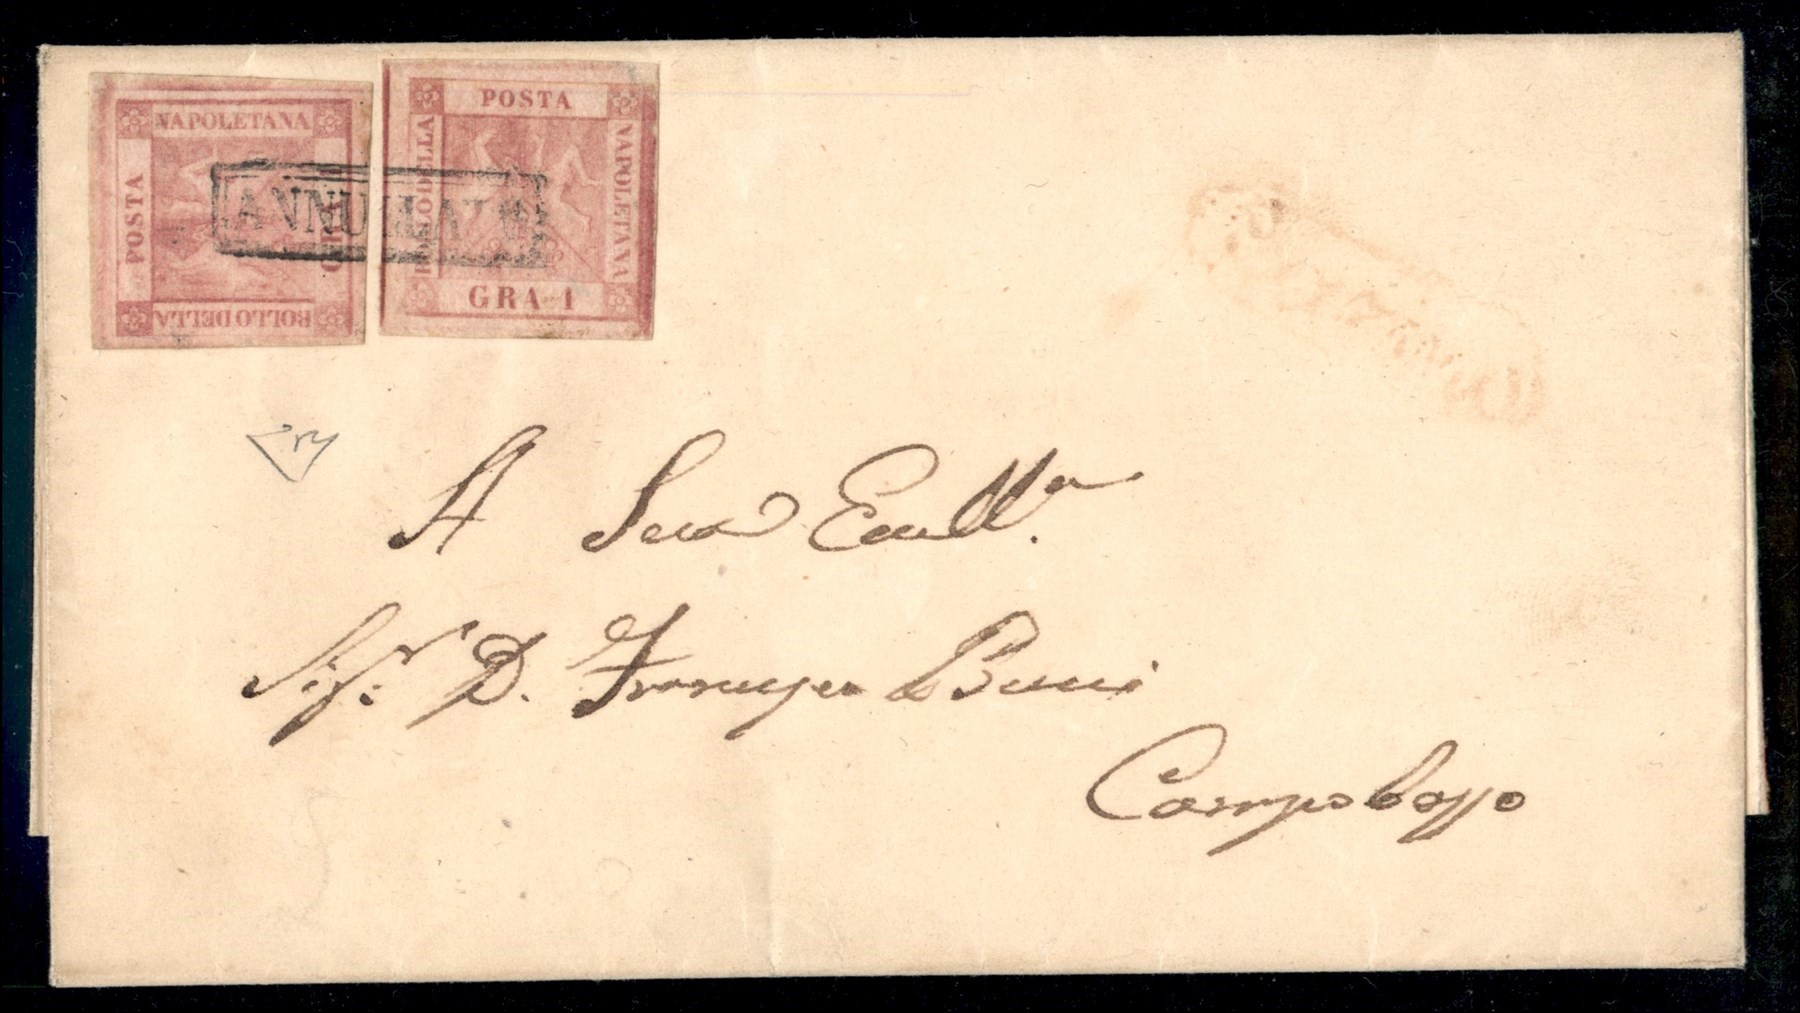 NAPOLETANA
POSTA
GRA
BOLLO DELLA
POSTA
BOLLO DELLA
NAPOLETANA
GRA 1
ANNULLATO
A Sua Eccell.
Sig. D. Francesco
Campobasso